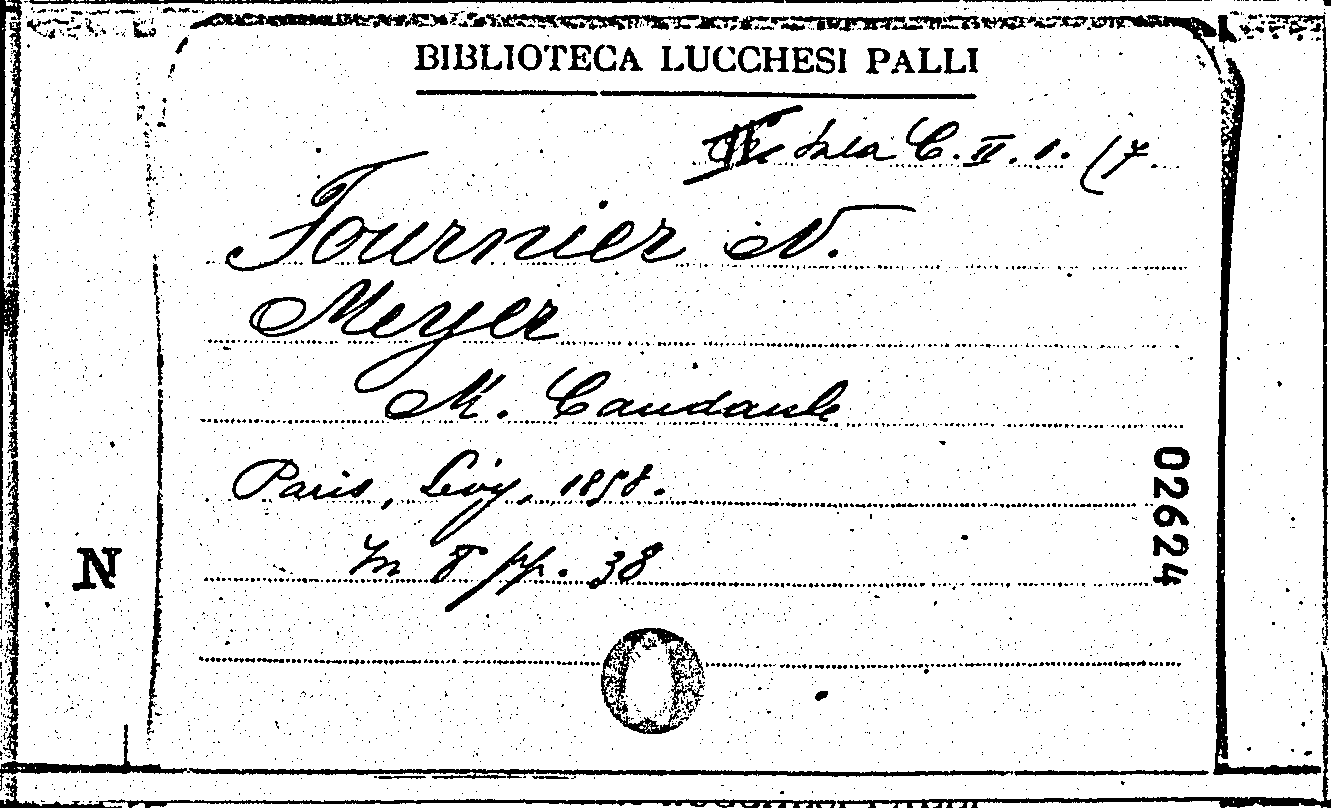 BIBLIOTECA LUCCHESI PALLI
C. II. 1. (7.
Fournier N.
Meyer
M. Candaule
Paris, Lévy, 1858.
In 8 pp. 38
02624
N